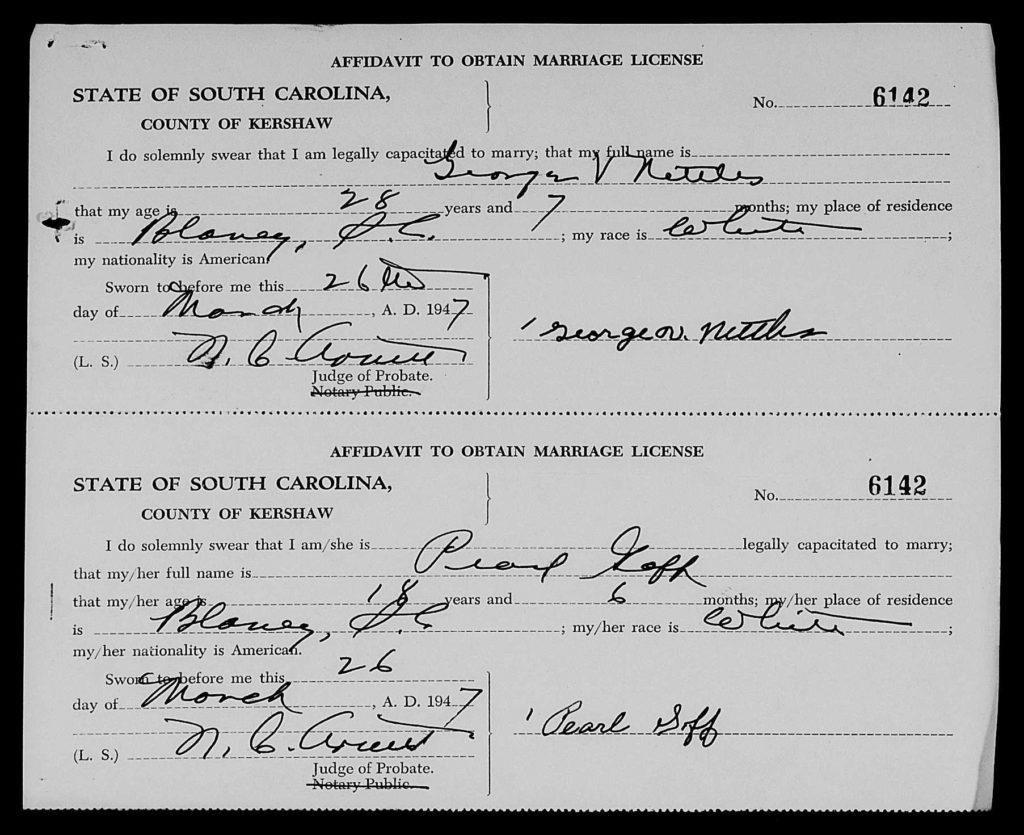 AFFIDAVIT TO OBTAIN MARRIAGE LICENSE
STATE OF SOUTH CAROLINA,
No. 6142
COUNTY OF KERSHAW
I do solemnly swear that I am legally capacitated to marry; that my full name is
George V Nettles
that my age is 28 years and 7 months; my place of residence
is Blaney, S.C. ; my race is White ;
my nationality is American.
Sworn to before me this 26th
day of March , A. D. 1947
George V. Nettles
(L. S.) N. C. Arnett
Judge of Probate.
Notary Public.
AFFIDAVIT TO OBTAIN MARRIAGE LICENSE
STATE OF SOUTH CAROLINA,
No. 6142
COUNTY OF KERSHAW
I do solemnly swear that I am/she is Pearl Goff legally capacitated to marry;
that my/her full name is
that my/her age is 18 years and 6 months; my/her place of residence
is Blaney, S.C ; my/her race is White ;
my/her nationality is American.
Sworn to before me this 26
day of March , A. D. 1947
Pearl Goff
(L. S.) N. C. Arnett
Judge of Probate.
Notary Public.